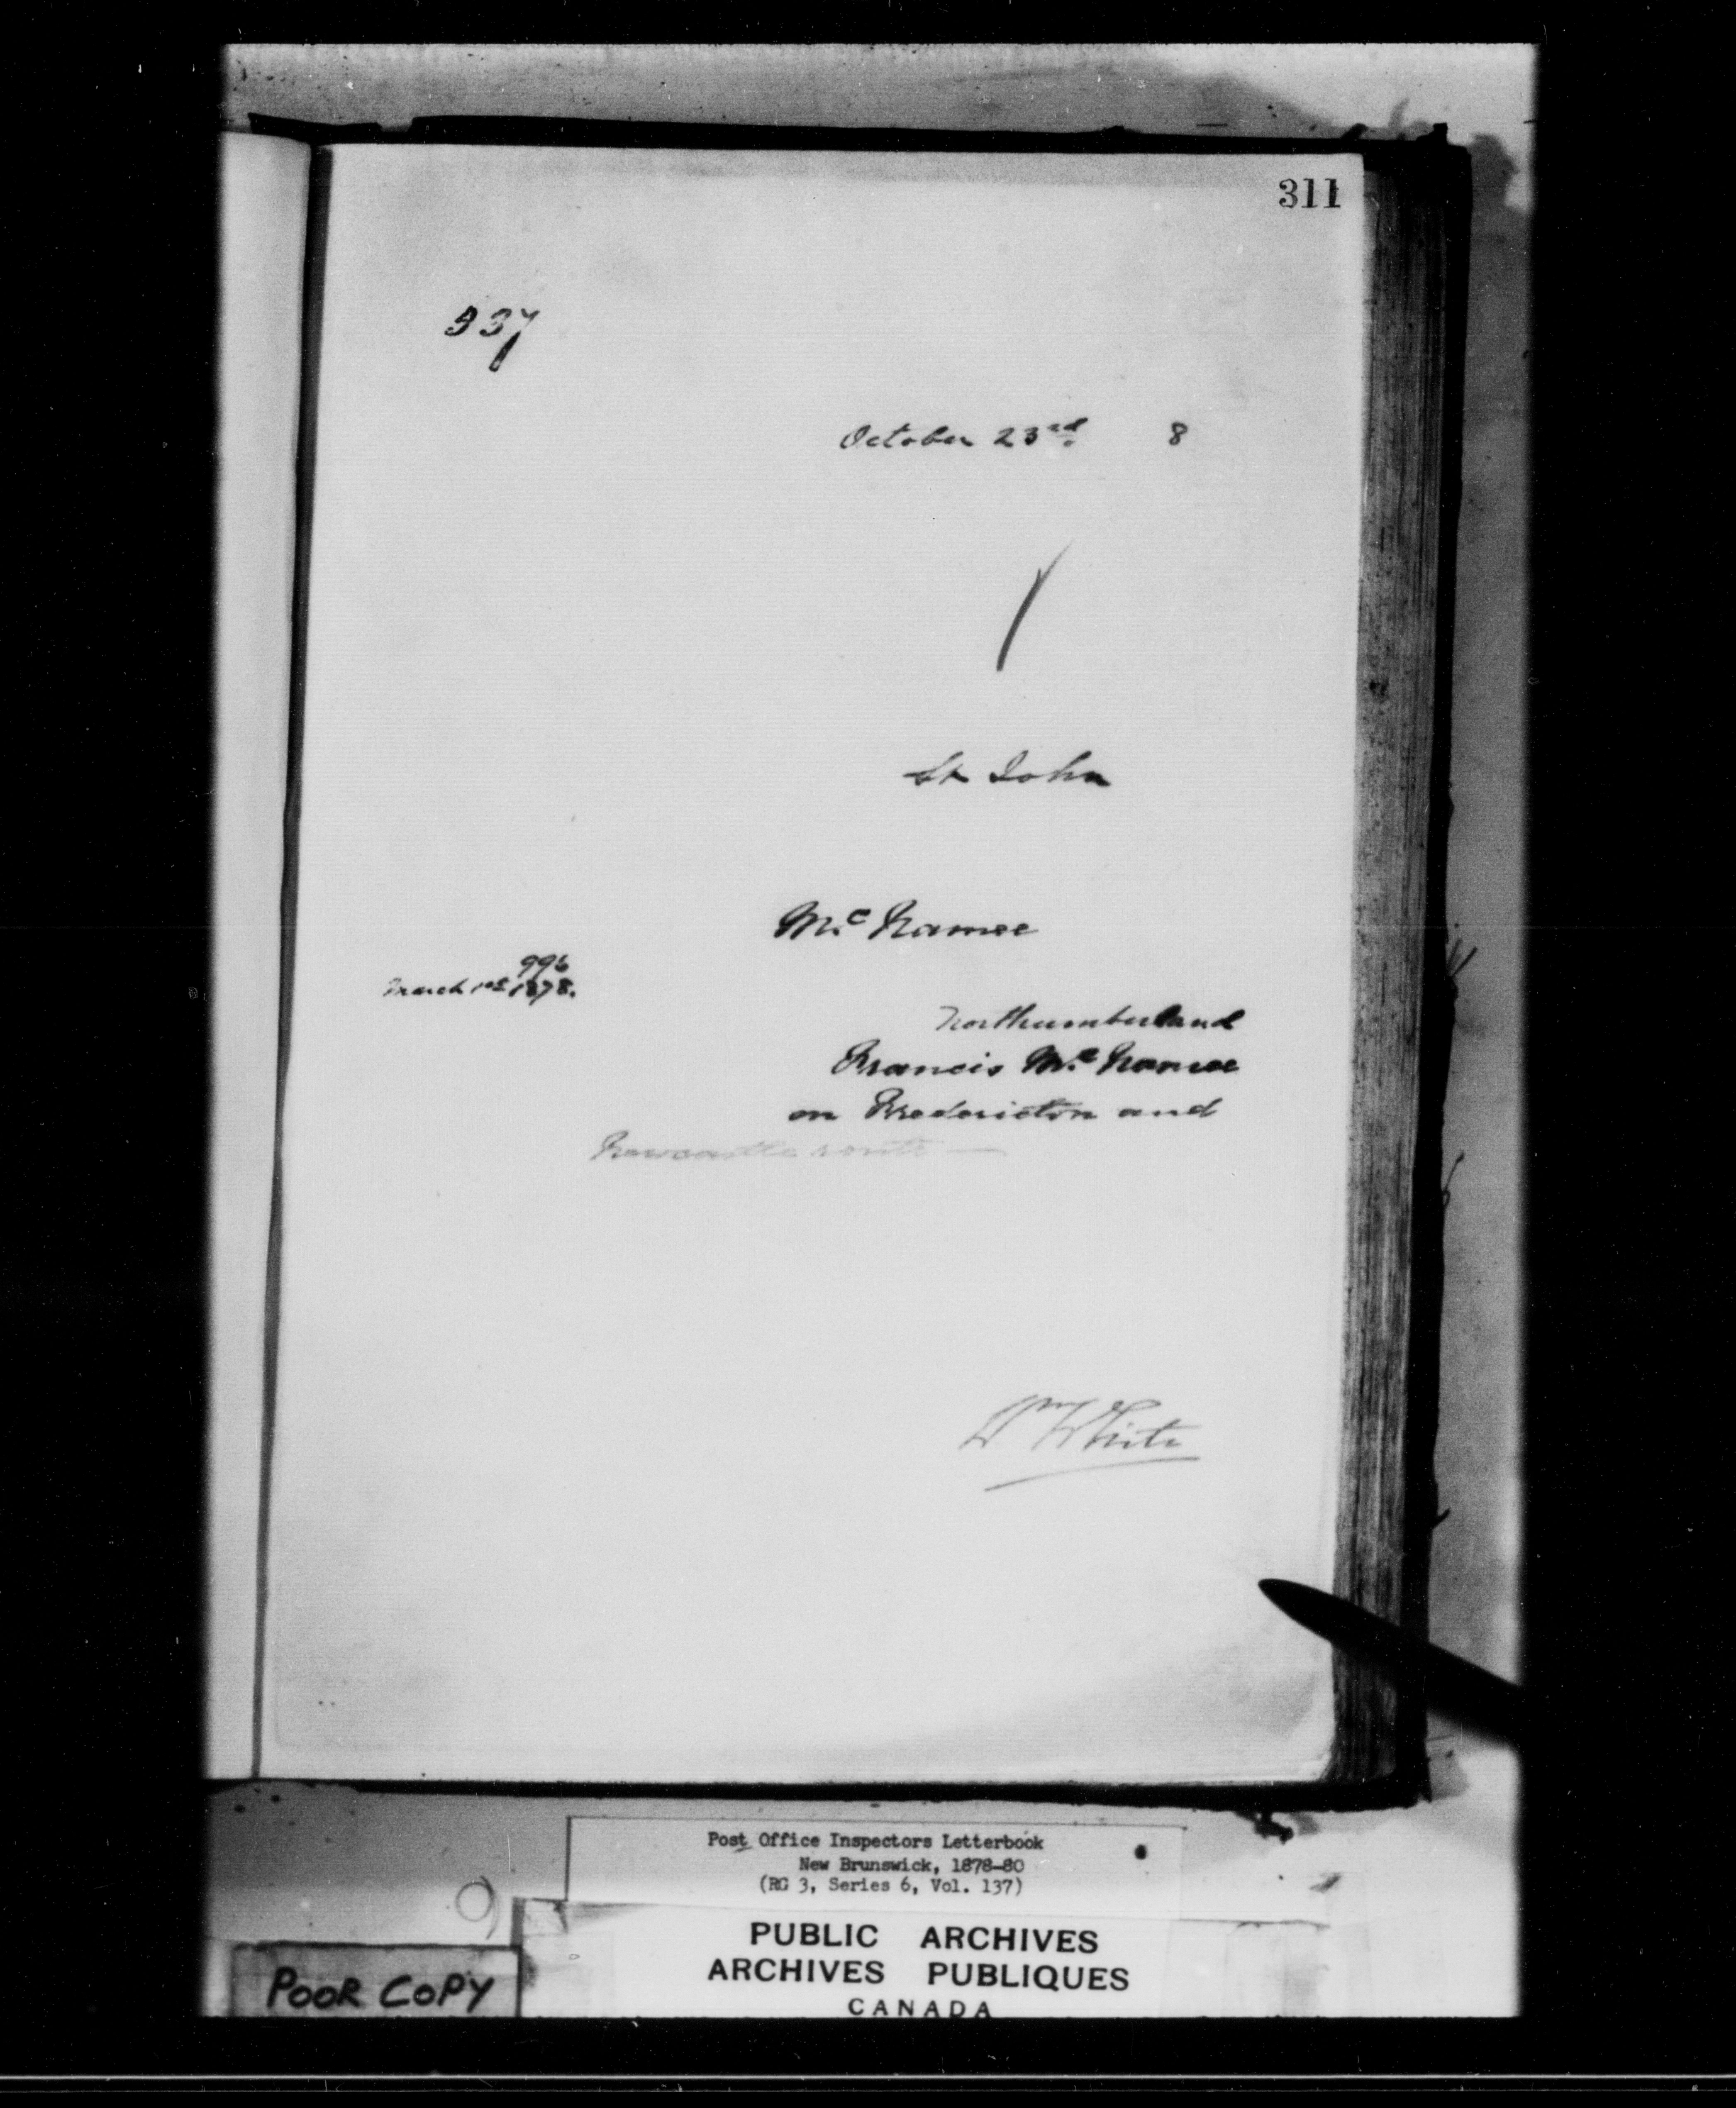 311
537
October 23rd. 8
St John
Mc Namee
996
March 1st 1878.
Northumberland
Francis Mc Namee
on Fredericton and
Newcastle route —
Wm White
Post Office Inspectors Letterbook
New Brunswick, 1878-80
(RG 3, Series 6, Vol. 137)
PUBLIC ARCHIVES
ARCHIVES PUBLIQUES
CANADA
POOR COPY